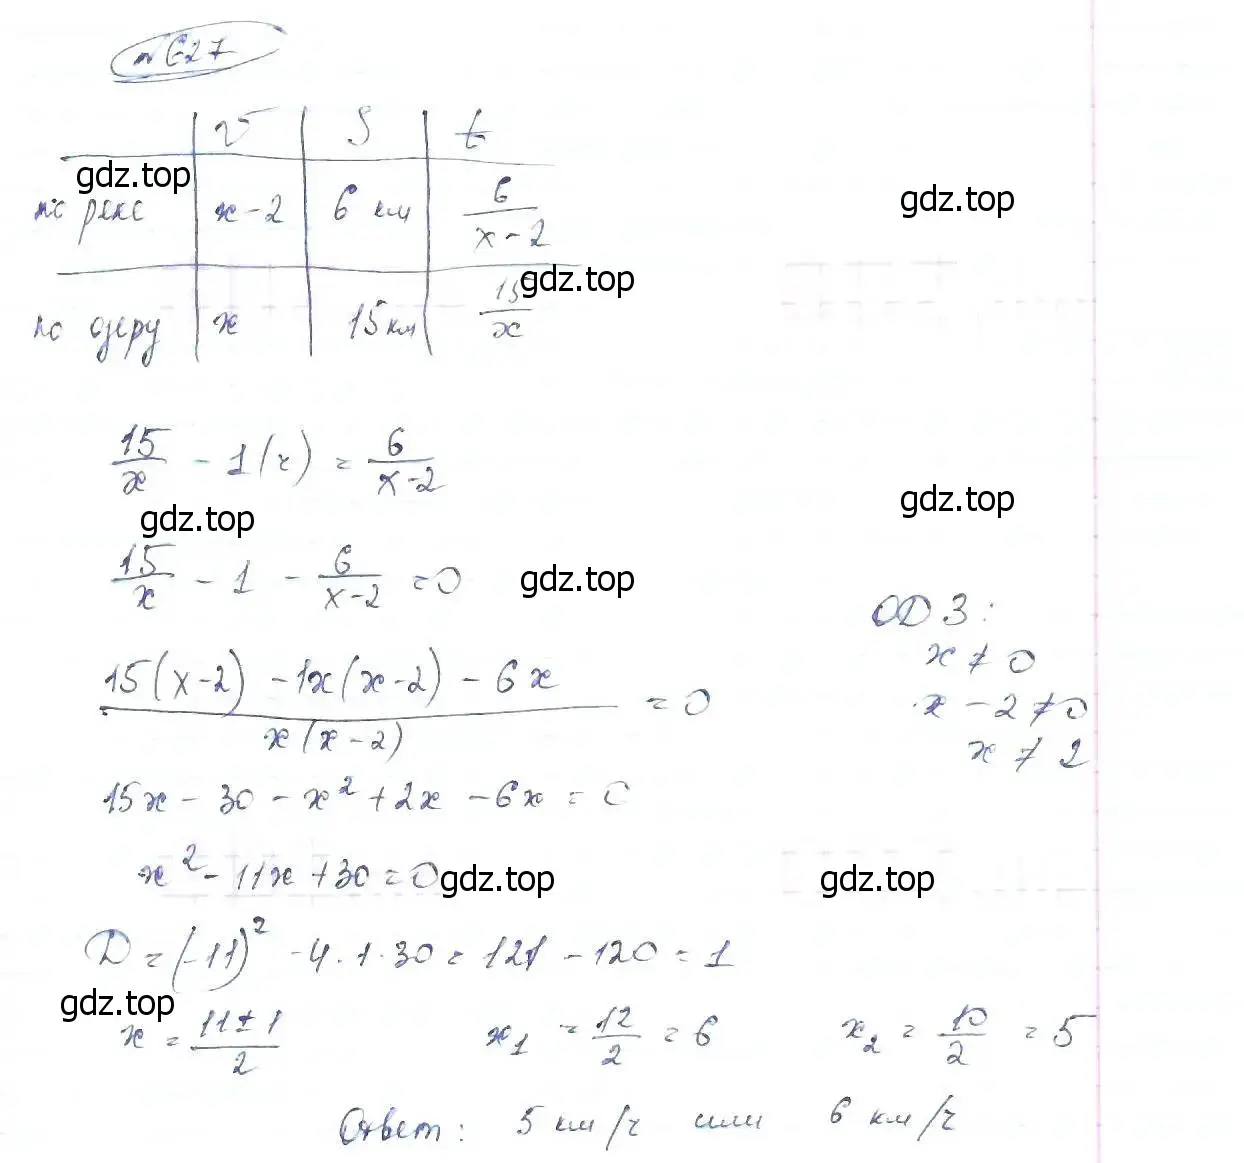 №627
v S t
gdz.top
по реке x-2 6 км 6/(x-2)
gdz.top
gdz.top
по озеру x 15 км 15/x
15/x - 1(ч) = 6/(x-2)
gdz.top
gdz.top
15/x - 1 - 6/(x-2) = 0
gdz.top
ОДЗ:
x ≠ 0
x - 2 ≠ 0
x ≠ 2
(15(x-2) - 1x(x-2) - 6x)/(x(x-2)) = 0
15x - 30 - x² + 2x - 6x = 0
x² - 11x + 30 = 0
gdz.top
gdz.top
D = (-11)² - 4·1·30 = 121 - 120 = 1
gdz.top
x = (11±1)/2 x₁ = 12/2 = 6 x₂ = 10/2 = 5
Ответ: 5 км/ч или 6 км/ч